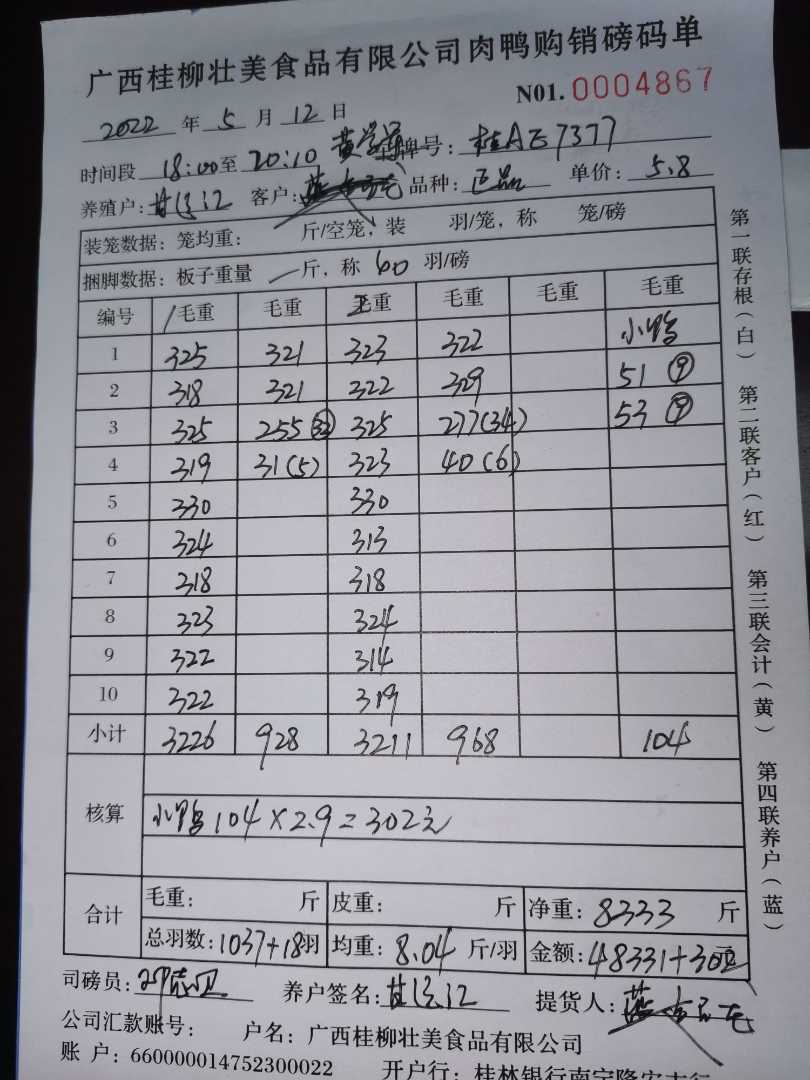 广西桂柳壮美食品有限公司肉鸭购销磅码单
N01. 0004867
2022 年 5 月 12 日
时间段 18:00至 20:10 牌号: 桂AE7377
养殖户: 客户: 品种: 正品 单价: 5.8
装笼数据: 笼均重: 斤/空笼, 装 羽/笼, 称 笼/磅
捆脚数据: 板子重量 斤, 称 60 羽/磅
编号 毛重 毛重 毛重 毛重 毛重 毛重
1 325 321 323 322 小鸭
2 318 321 322 329 51 ⑨
3 325 255 ㉜ 325 277(34) 53 ⑨
4 319 31(5) 323 40(6)
5 330 330
6 324 313
7 318 318
8 323 324
9 322 314
10 322 319
小计 3226 928 3211 968 104
核算 小鸭104×2.9=302元
合计 毛重: 斤 皮重: 斤 净重: 8333 斤
总羽数: 1037+18羽 均重: 8.04 斤/羽 金额: 48331+302元
司磅员: 养户签名: 提货人:
公司汇款账号: 户名: 广西桂柳壮美食品有限公司
账 户: 660000014752300022 开户行: 桂林银行南宁隆安支行
第一联存根(白) 第二联客户(红) 第三联会计(黄) 第四联养户(蓝)